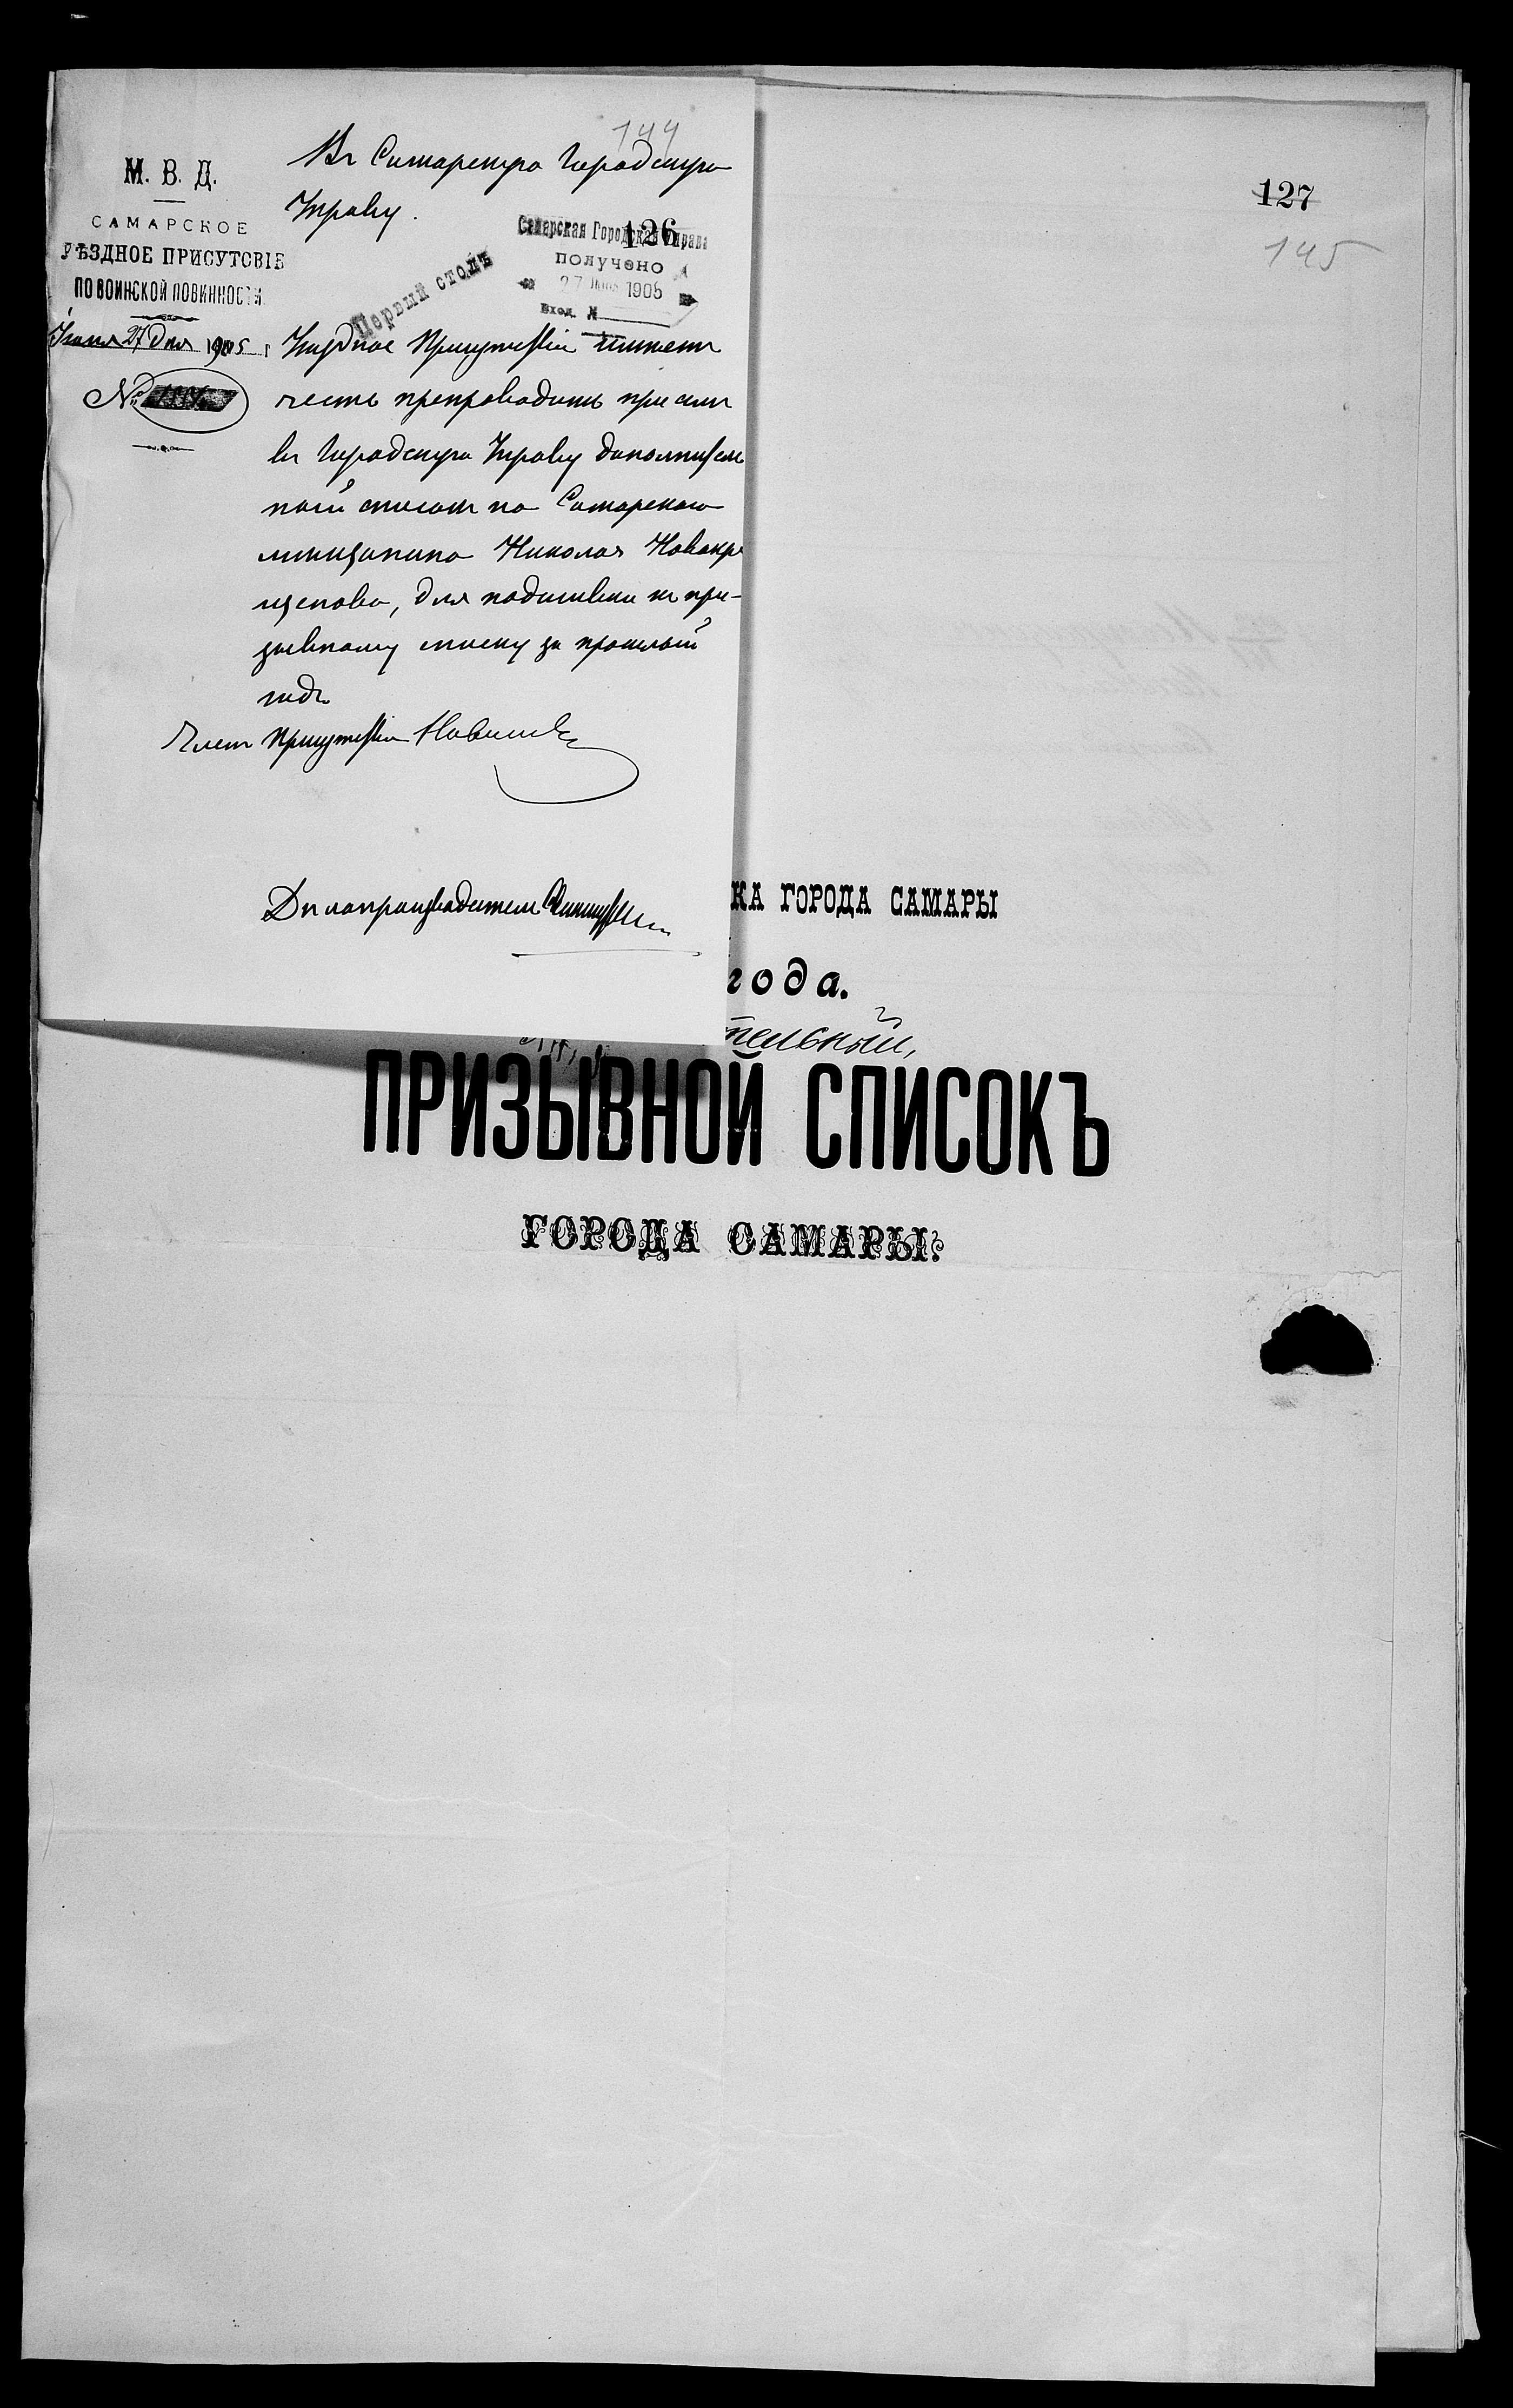 144
М. В. Д.
САМАРСКОЕ
УѢЗДНОЕ ПРИСУТСВІЕ
ПО ВОИНСКОЙ ПОВИННОСТИ
27 дня 1905 г
№
Въ Самарскую Городскую
Управу.
126
Самарская Городская Управа
получено
27 1905
Вход. №
Первый столъ
Уѣздное Присутствіе имѣетъ
честь препроводить при семъ
въ Городскую Управу дополнитель
ный списокъ на Самарскаго
мѣщанина Николая Новокре
щенова, для подшивки къ при-
зывному списку за прошлый
годъ
Членъ Присутствія
Дѣлопроизводитель
127
145
КА ГОРОДА САМАРЫ
года.
тельный,
ПРИЗЫВНОЙ СПИСОКЪ
ГОРОДА САМАРЫ.